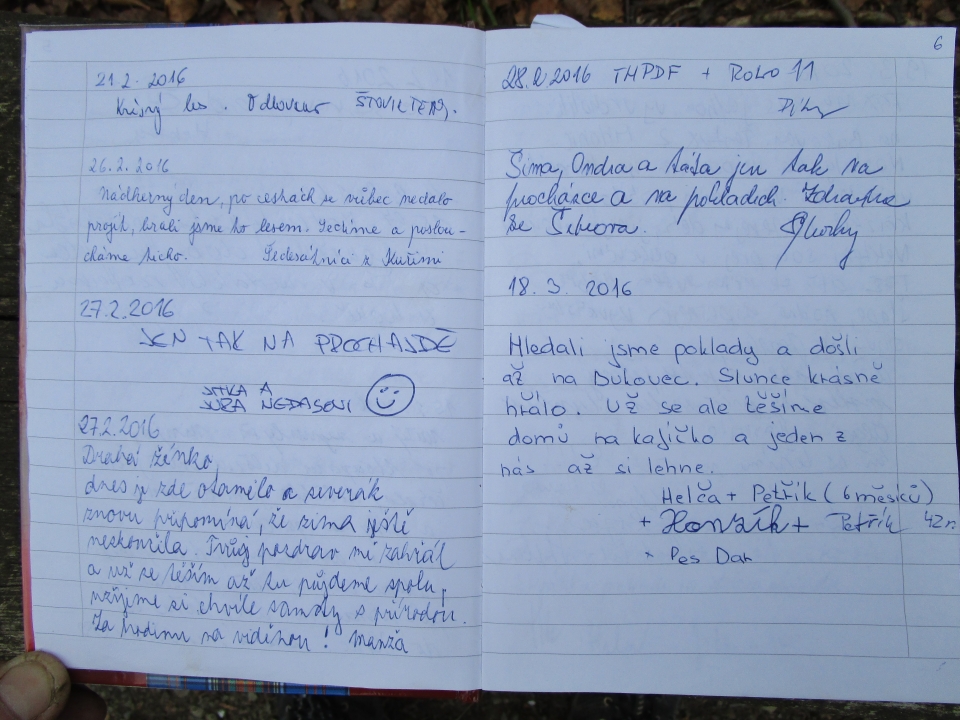 21.2. 2016
Krásný les. Odkovcar
26.2.2016
Nádherný den, po cestách se vůbec nedalo
projít, brali jsme to lesem. Sedíme a poslou-
cháme ticho. Šedesátníci z Kuřimi
27.2.2016
JEN TAK NA PROCHAJDĚ
JITKA A
JURA NEDASENI
27.2.2016
Drahá žínko,
dnes je zde otamělo a severák
znovu připomíná, že zima ještě
neskončila. Tvůj pozdrav mi zahřál
a už se těším až tu půjdeme spolu,
užijeme si chvíle samoty s přírodou.
Za hodinu na viděnou! Manža
6
28.2 2016 THPDF + ROLO 11
Šima, Ondra a táta jen tak na
procházce a na pokladech. Zdravíme
ze
18. 3. 2016
Hledali jsme poklady a došli
až na Dukovec. Slunce krásně
hřálo. Už se ale těšíme
domů na kafíčko a jeden z
nás až si lehne.
Helča + Petřík (6 měsíců)
+ Honzík + Petřík 42
Pes Dar